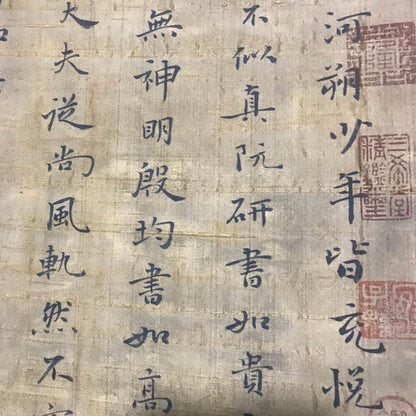 河朔少年皆充悅
不似真阮研書如貴
無神明殷均書如高
大夫從尚風軌然不